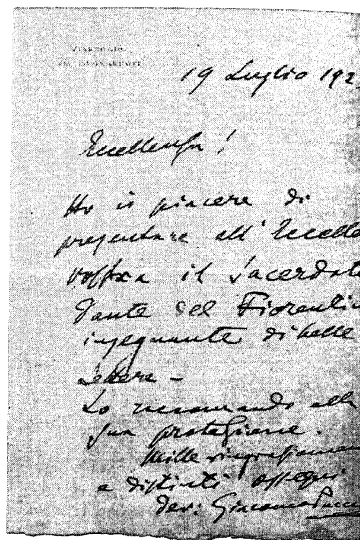 VIAREGGIO
19 Luglio 192
Eccellenza!
Ho il piacere di
presentare all'Eccelle
vostra il sacerdot
Dante del Fiorenti
insegnante di belle
lettere –
Lo raccomando alla
sua protezione.
Mille ringraziamen
e distinti ossequi
dev: Giacomo Pucc